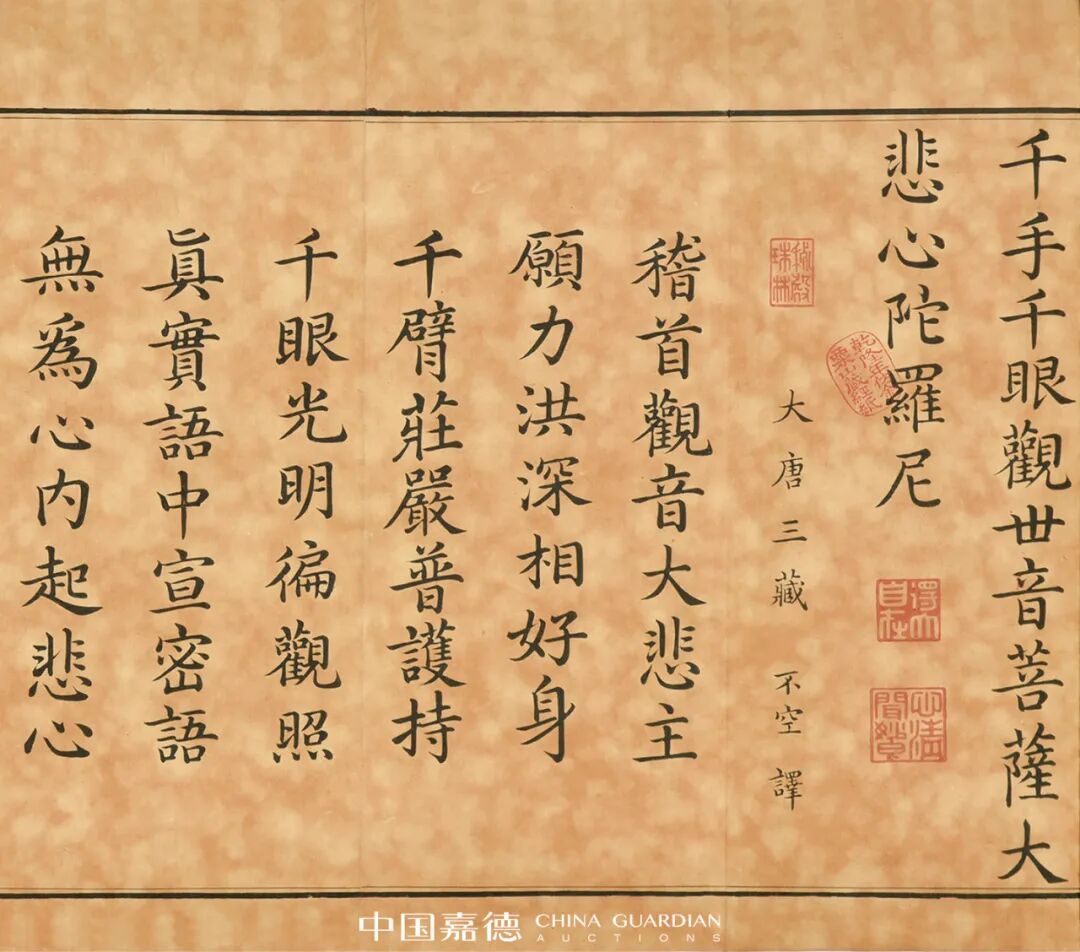 千手千眼觀世音菩薩大
悲心陀羅尼
大唐三藏 不空譯
稽首觀音大悲主
願力洪深相好身
千臂莊嚴普護持
千眼光明徧觀照
眞實語中宣密語
無爲心内起悲心
秘殿珠林
乾隆年倣金粟山藏經紙
得大自在
中国嘉德 CHINA GUARDIAN
AUCTIONS